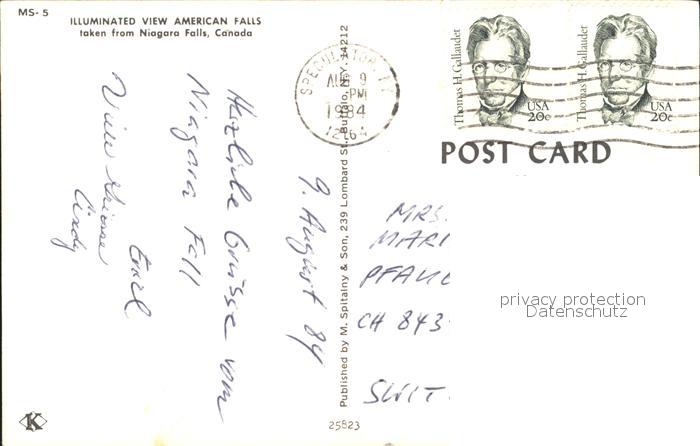 MS-5
ILLUMINATED VIEW AMERICAN FALLS
taken from Niagara Falls, Canada
9. August 84
Herzliche Grüsse vom
Niagara Fall
Emil
Viele Grüsse
Cindy
K
Published by M. Spitalny & Son, 239 Lombard St., Buffalo, N.Y. 14212
25823
AUG 9
PM
1984
Thomas H. Gallaudet
USA
20c
Thomas H. Gallaudet
USA
20c
POST CARD
MRS.
MARI
PFAU
CH 843
SWIT
privacy protection
Datenschutz